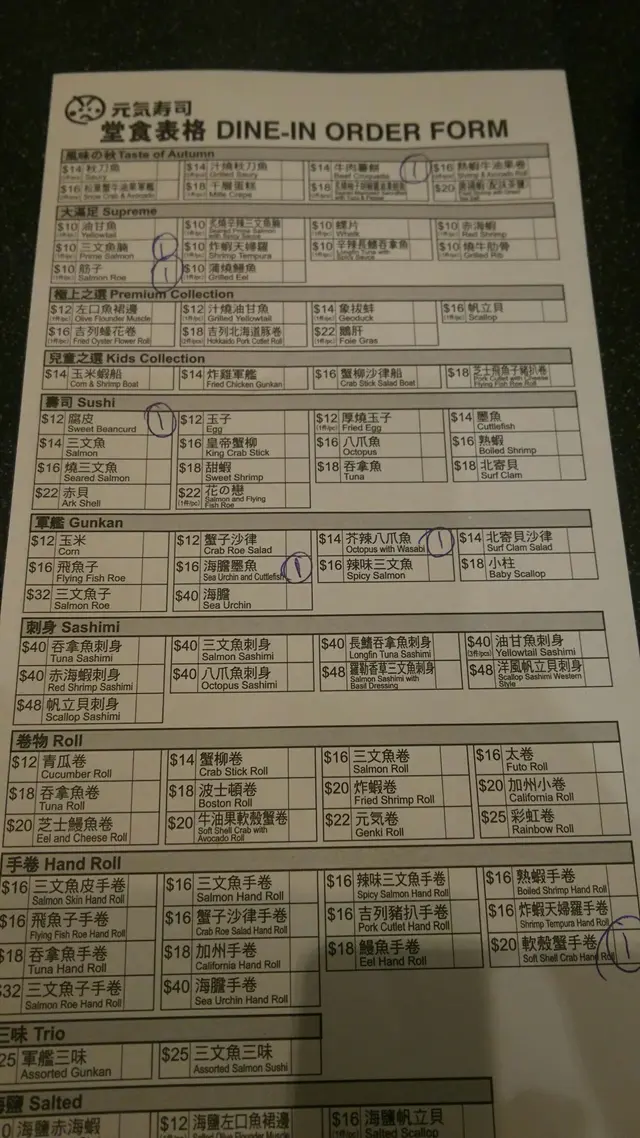 元気寿司
堂食表格 DINE-IN ORDER FORM
風味の秋 Taste of Autumn
$14 秋刀魚 $14 汁燒秋刀魚 $14 牛肉薯餅 1 $16 熟蝦牛油果卷
Saury Grilled Saury Beef Croquette Shrimp & Avocado Roll
$16 松葉蟹牛油果軍艦 $18 千層蛋糕 $18 $20
Snow Crab & Avocado Mille Crepe
大滿足 Supreme
$10 油甘魚 $10 炙燒辛辣三文魚腩 $10 螺片 $10 赤海蝦
Yellowtail Seared Prime Salmon with Spicy Sauce Whelk Red Shrimp
$10 三文魚腩 1 $10 炸蝦天婦羅 $10 辛辣長鰭吞拿魚 $10 燒牛肋骨
Prime Salmon Shrimp Tempura Longfin Tuna with Spicy Sauce Grilled Rib
$10 筋子 1 $10 蒲燒鰻魚
Salmon Roe Grilled Eel
極上之選 Premium Collection
$12 左口魚裙邊 $12 汁燒油甘魚 $14 象拔蚌 $16 帆立貝
Olive Flounder Muscle Grilled Yellowtail Geoduck Scallop
$16 吉列蠔花卷 $18 吉列北海道豚卷 $22 鵝肝
Fried Oyster Flower Roll Hokkaido Pork Cutlet Roll Foie Gras
兒童之選 Kids Collection
$14 玉米蝦船 $14 炸雞軍艦 $16 蟹柳沙律船 $18 芝士飛魚子豬扒卷
Corn & Shrimp Boat Fried Chicken Gunkan Crab Stick Salad Boat Pork Cutlet with Cheese Flying Fish Roe Roll
壽司 Sushi
$12 腐皮 1 $12 玉子 $12 厚燒玉子 $14 墨魚
Sweet Beancurd Egg Fried Egg Cuttlefish
$14 三文魚 $16 皇帝蟹柳 $16 八爪魚 $16 熟蝦
Salmon King Crab Stick Octopus Boiled Shrimp
$16 燒三文魚 $18 甜蝦 $18 吞拿魚 $18 北寄貝
Seared Salmon Sweet Shrimp Tuna Surf Clam
$22 赤貝 $22 花の戀
Ark Shell Salmon and Flying Fish Roe
軍艦 Gunkan
$12 玉米 $12 蟹子沙律 $14 芥辣八爪魚 1 $14 北寄貝沙律
Corn Crab Roe Salad Octopus with Wasabi Surf Clam Salad
$16 飛魚子 $16 海膽墨魚 1 $16 辣味三文魚 $18 小柱
Flying Fish Roe Sea Urchin and Cuttlefish Spicy Salmon Baby Scallop
$32 三文魚子 $40 海膽
Salmon Roe Sea Urchin
刺身 Sashimi
$40 吞拿魚刺身 $40 三文魚刺身 $40 長鰭吞拿魚刺身 $40 油甘魚刺身
Tuna Sashimi Salmon Sashimi Longfin Tuna Sashimi Yellowtail Sashimi
$40 赤海蝦刺身 $40 八爪魚刺身 $48 羅勒香草三文魚刺身 $48 洋風帆立貝刺身
Red Shrimp Sashimi Octopus Sashimi Salmon Sashimi with Basil Dressing Scallop Sashimi Western Style
$48 帆立貝刺身
Scallop Sashimi
卷物 Roll
$12 青瓜卷 $14 蟹柳卷 $16 三文魚卷 $16 太卷
Cucumber Roll Crab Stick Roll Salmon Roll Futo Roll
$18 吞拿魚卷 $18 波士頓卷 $20 炸蝦卷 $20 加州小卷
Tuna Roll Boston Roll Fried Shrimp Roll California Roll
$20 芝士鰻魚卷 $20 牛油果軟殼蟹卷 $22 元氣卷 $25 彩虹卷
Eel and Cheese Roll Soft Shell Crab with Avocado Roll Genki Roll Rainbow Roll
手卷 Hand Roll
$16 三文魚皮手卷 $16 三文魚手卷 $16 辣味三文魚手卷 $16 熟蝦手卷
Salmon Skin Hand Roll Salmon Hand Roll Spicy Salmon Hand Roll Boiled Shrimp Hand Roll
$16 飛魚子手卷 $16 蟹子沙律手卷 $16 吉列豬扒手卷 $16 炸蝦天婦羅手卷
Flying Fish Roe Hand Roll Crab Roe Salad Hand Roll Pork Cutlet Hand Roll Shrimp Tempura Hand Roll
$18 吞拿魚手卷 $18 加州手卷 $18 鰻魚手卷 $20 軟殼蟹手卷 1
Tuna Hand Roll California Hand Roll Eel Hand Roll Soft Shell Crab Hand Roll
$32 三文魚子手卷 $40 海膽手卷
Salmon Roe Hand Roll Sea Urchin Hand Roll
三味 Trio
25 軍艦三味 $25 三文魚三味
Assorted Gunkan Assorted Salmon Sushi
海鹽 Salted
0 海鹽赤海蝦 $12 海鹽左口魚裙邊 $16 海鹽帆立貝
Salted Olive Flounder Muscle Salted Scallop